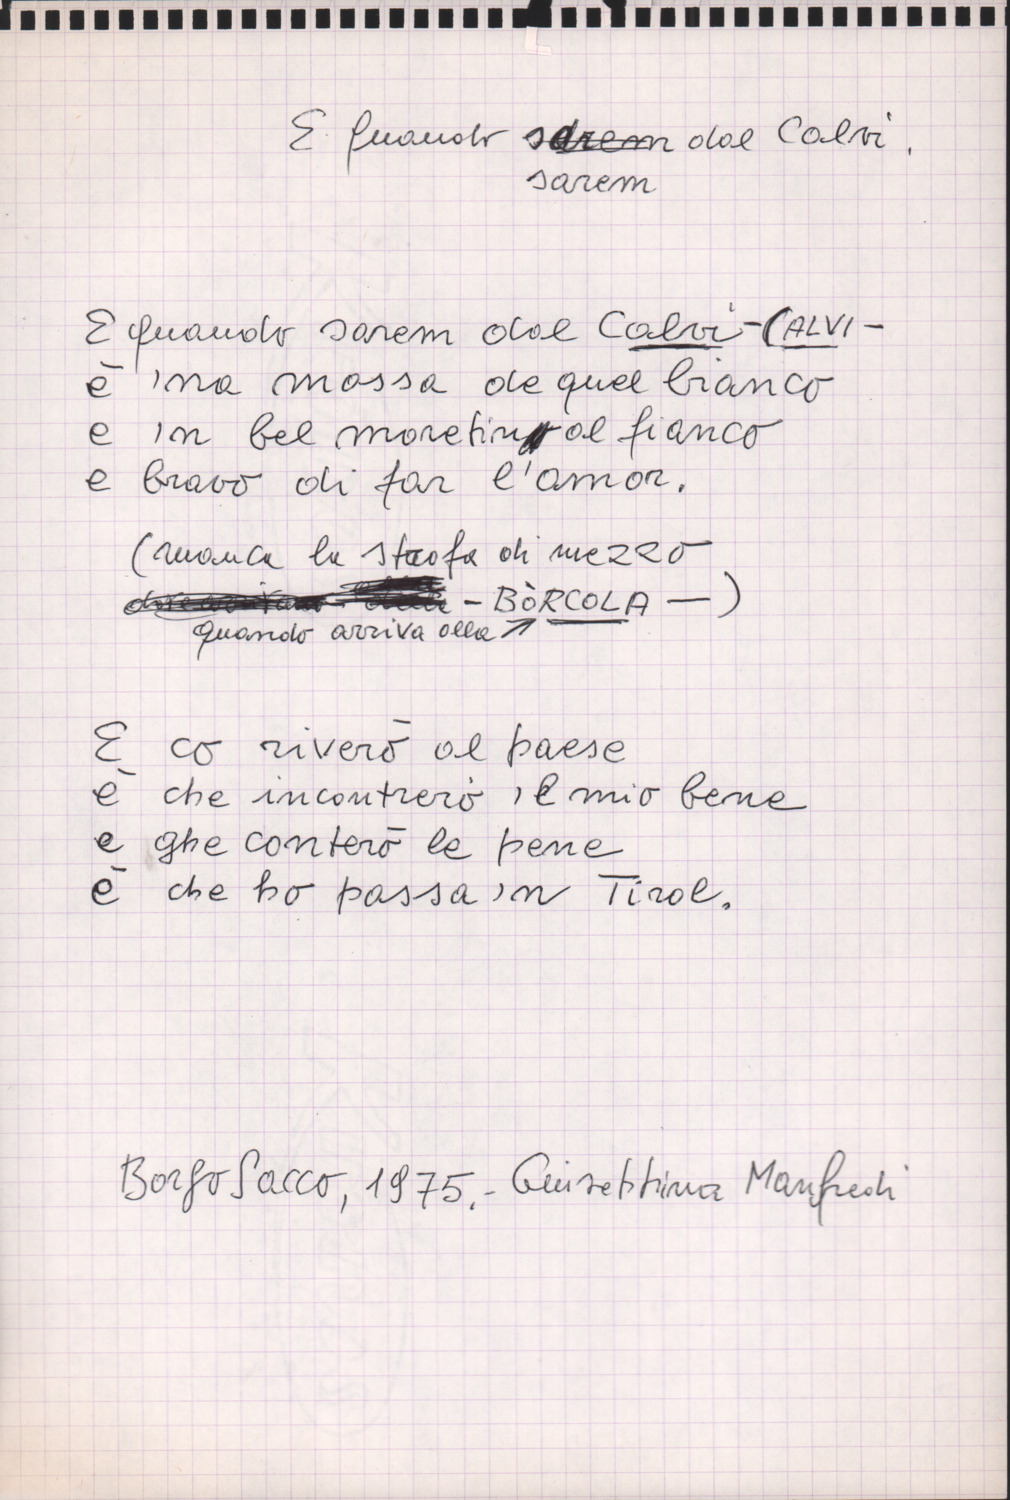 E quando sarem dal Calvi.
sarem
E quando sarem dal Calvi - (ALVI -
è 'na massa de quel bianco
e in bel moretin al fianco
e bravo di far l'amor.
(manca la strofa di mezzo
- BÒRCOLA - )
quando arriva alla
E co riverò al paese
è che incontrerò il mio bene
e ghe conterò le pene
è che ho passa in Tirol.
Borgo Sacco, 1975. - Giuseppina Manfredi